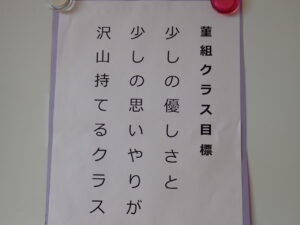 菫組クラス目標
少しの優しさと
少しの思いやりが
沢山持てるクラス